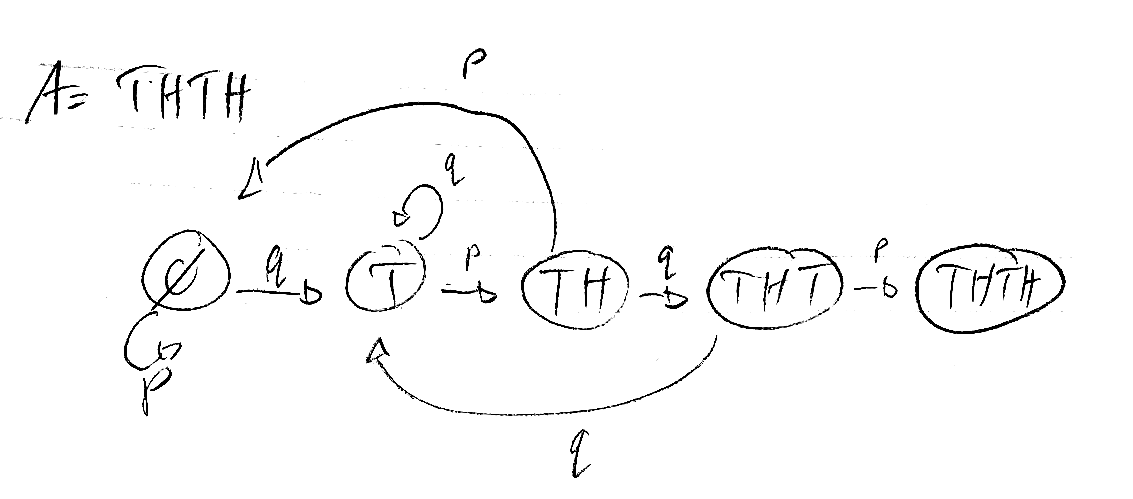 p
A= THTH
q
∅ q T p TH q THT p THTH
p
q